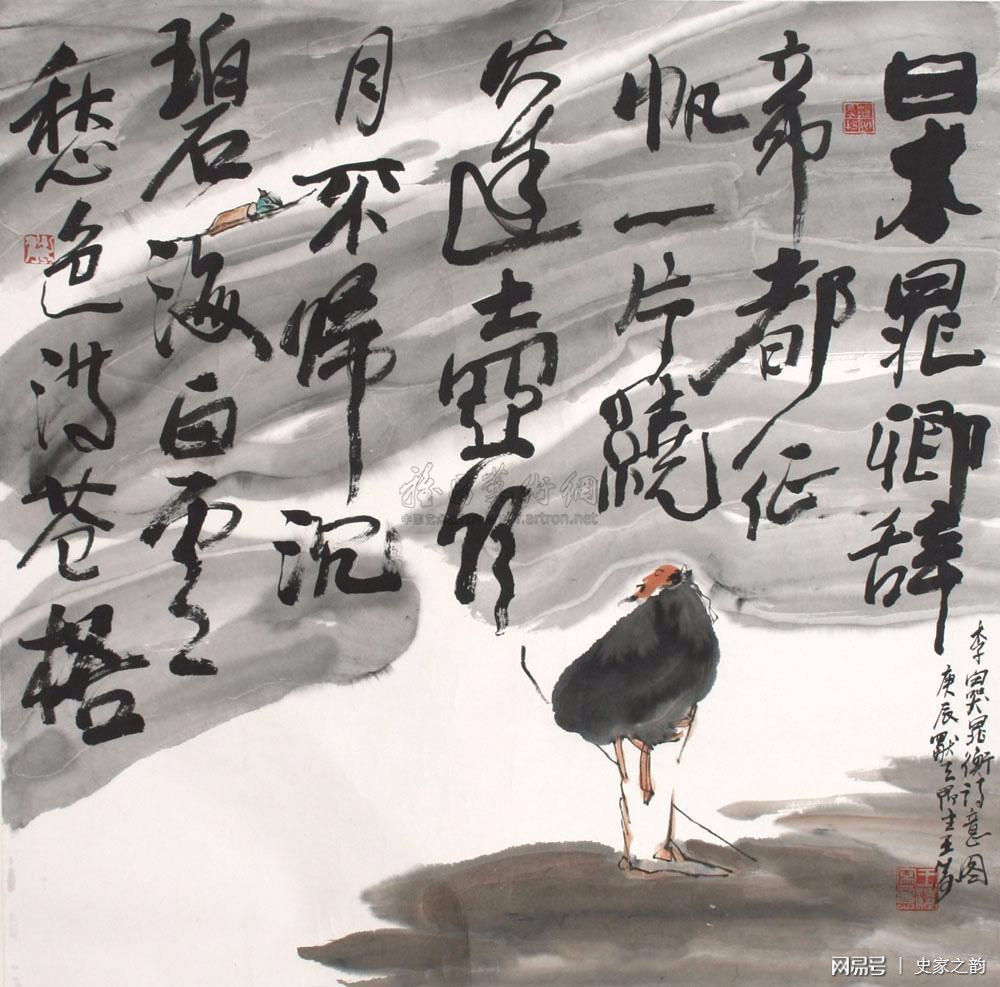 日本晁卿辞
帝都征
帆一片繞
蓬壺明
月不帰沉
碧海白雲
愁色满苍梧
李白哭晁衡诗意图
庚辰
王涛
雅昌藝術網
www.artron.net
网易号 | 史家之韵